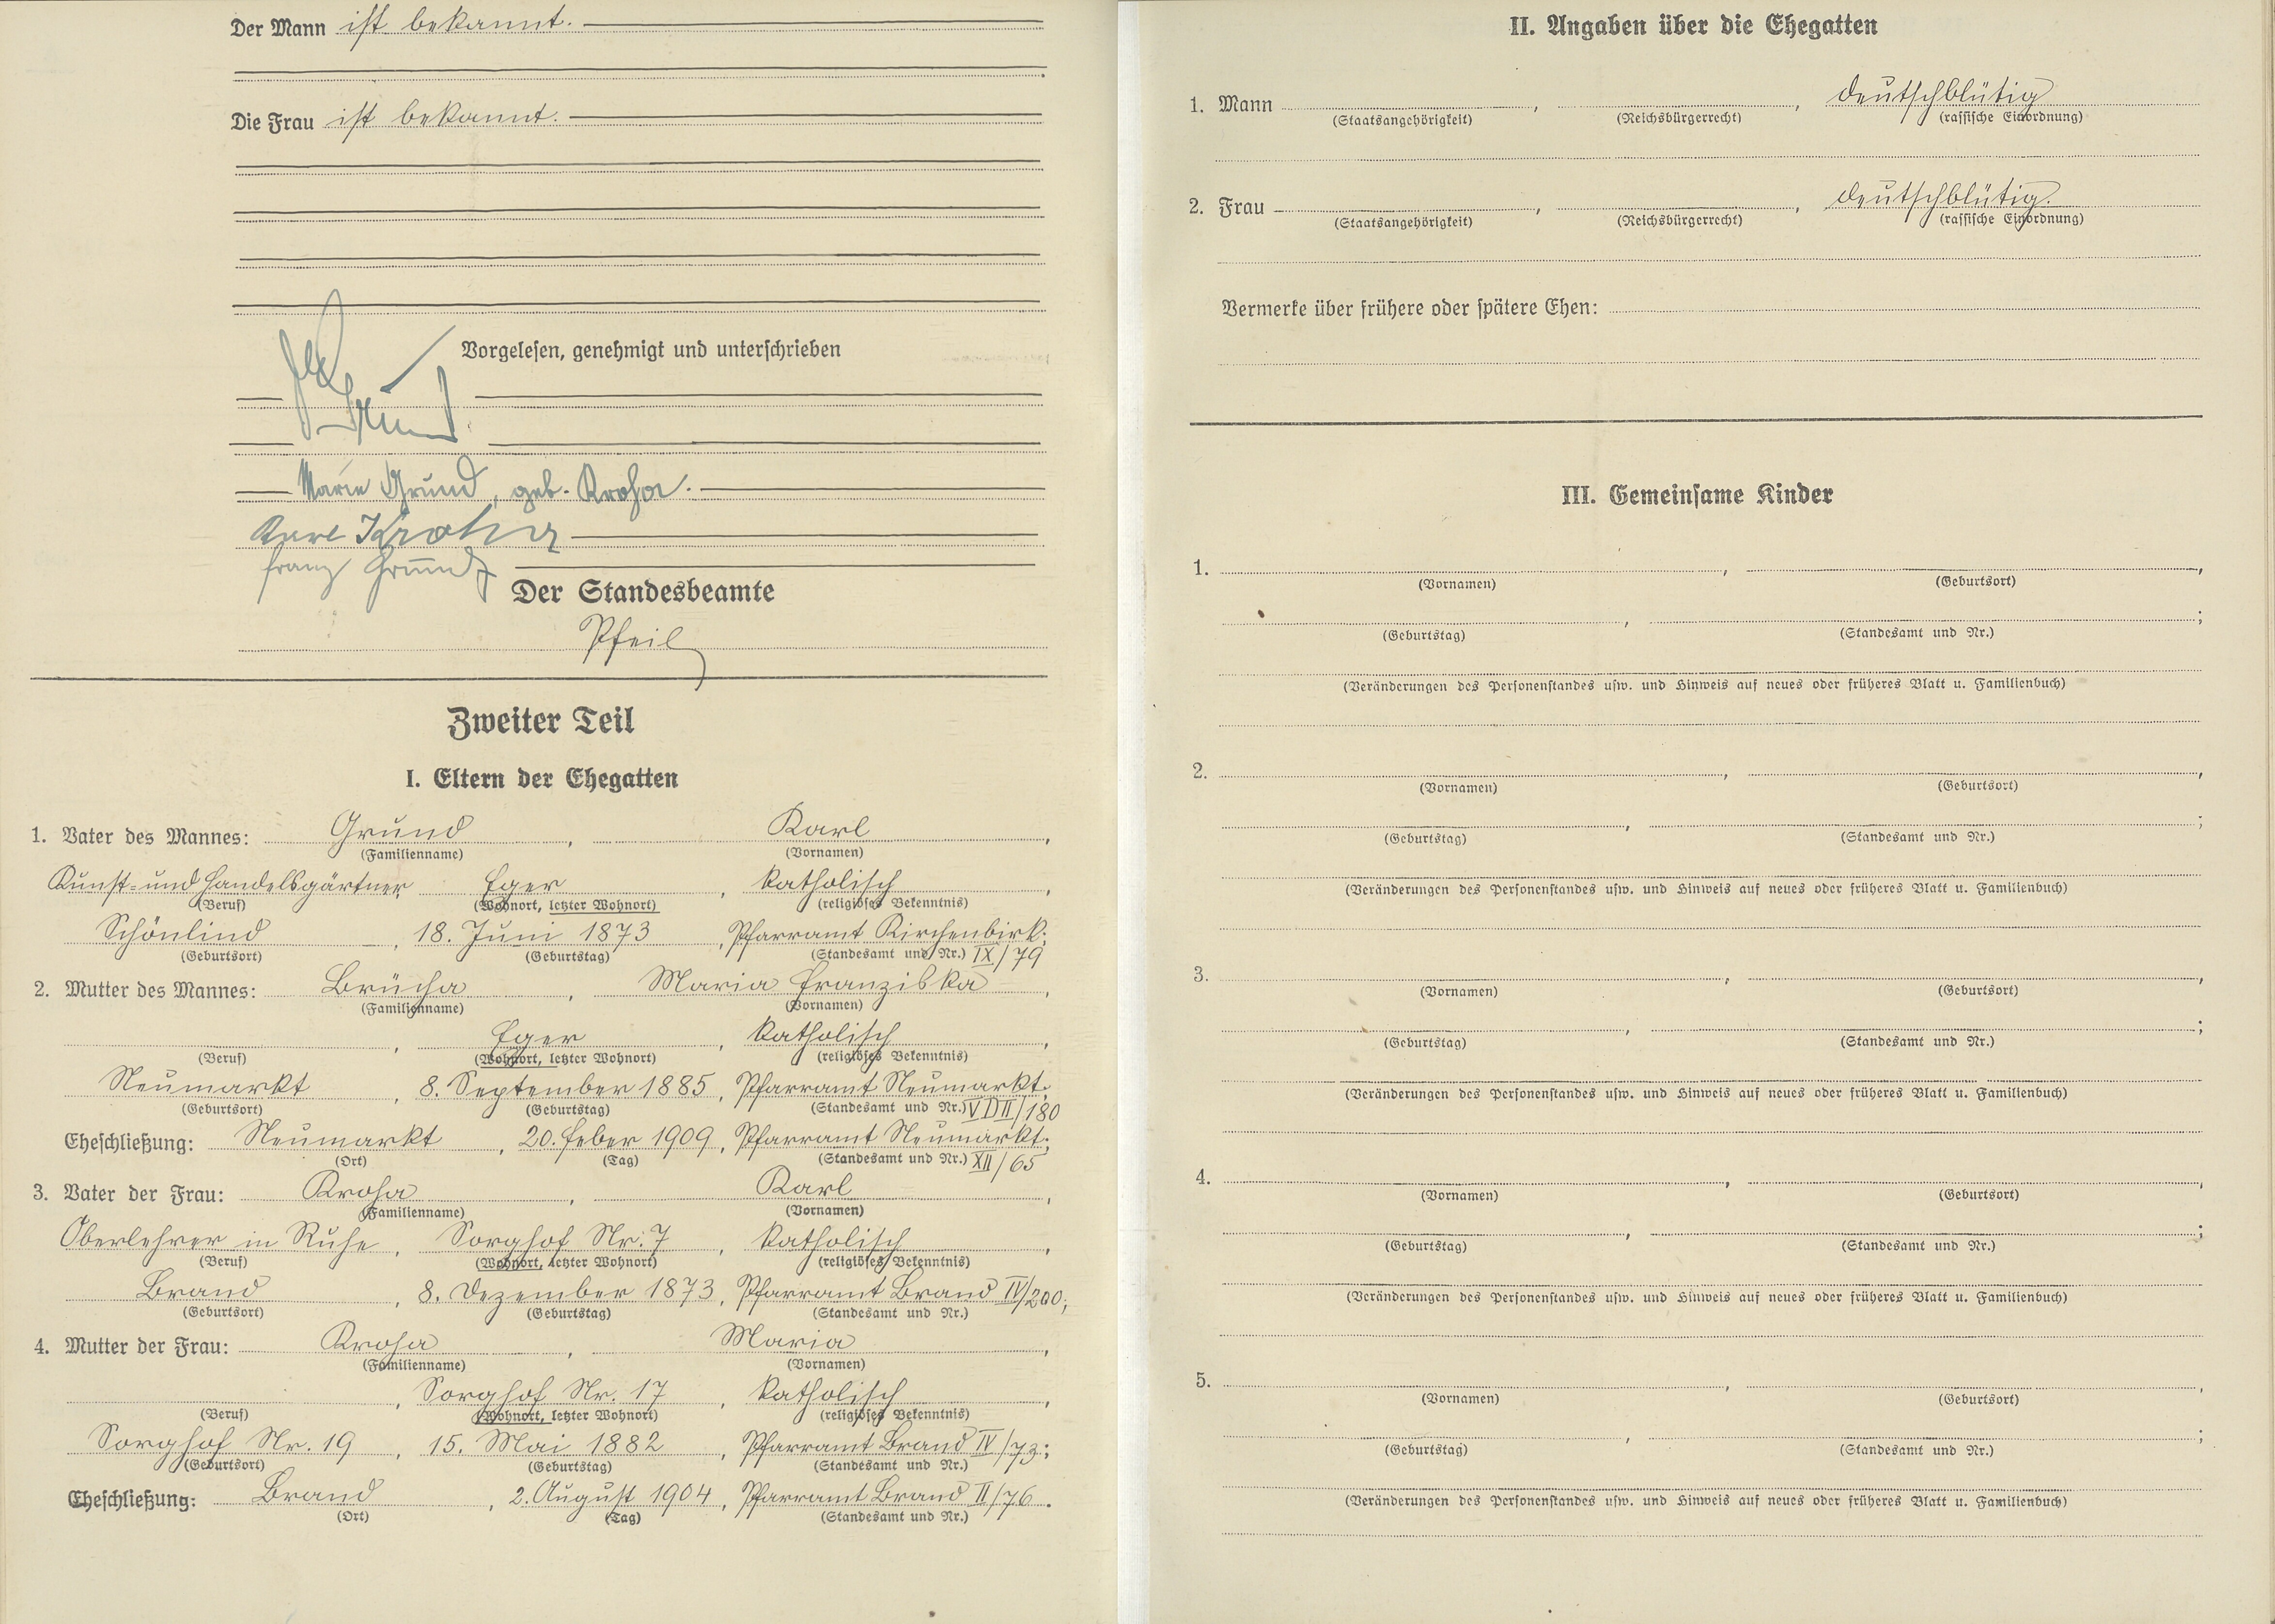 Der Mann ist bekannt.
Die Frau ist bekannt.
Vorgelesen, genehmigt und unterschrieben
Grund
Marie Grund, geb. Kroha.
Karl Kroha
Franz Grund
Der Standesbeamte
Pfeil
Zweiter Teil
I. Eltern der Ehegatten
1. Vater des Mannes: Grund, Karl,
(Familienname) (Vornamen)
Kunst- und Handelsgärtner, Eger, katholisch,
(Beruf) (Wohnort, letzter Wohnort) (religiöses Bekenntnis)
Schönlind, 18. Juni 1873, Pfarramt Kirchenbirk;
(Geburtsort) (Geburtstag) (Standesamt und Nr.) IX/79
2. Mutter des Mannes: Brücha, Maria Franziska,
(Familienname) (Vornamen)
, Eger, katholisch,
(Beruf) (Wohnort, letzter Wohnort) (religiöses Bekenntnis)
Neumarkt, 8. September 1885, Pfarramt Neumarkt;
(Geburtsort) (Geburtstag) (Standesamt und Nr.) /180
Eheschließung: Neumarkt, 20. Feber 1909, Pfarramt Neumarkt;
(Ort) (Tag) (Standesamt und Nr.) XII/65
3. Vater der Frau: Kroha, Karl,
(Familienname) (Vornamen)
Oberlehrer in Ruhe, Sorghof Nr. 7, katholisch,
(Beruf) (Wohnort, letzter Wohnort) (religiöses Bekenntnis)
Brand, 8. Dezember 1873, Pfarramt Brand IV/200;
(Geburtsort) (Geburtstag) (Standesamt und Nr.)
4. Mutter der Frau: Kroha, Maria,
(Familienname) (Vornamen)
, Sorghof Nr. 17, katholisch,
(Beruf) (Wohnort, letzter Wohnort) (religiöses Bekenntnis)
Sorghof Nr. 19, 15. Mai 1882, Pfarramt Brand IV/73;
(Geburtsort) (Geburtstag) (Standesamt und Nr.)
Eheschließung: Brand, 2. August 1904, Pfarramt Brand II/76.
(Ort) (Tag) (Standesamt und Nr.)
II. Angaben über die Ehegatten
1. Mann , , deutschblütig
(Staatsangehörigkeit) (Reichsbürgerrecht) (rassische Einordnung)
2. Frau , , deutschblütig.
(Staatsangehörigkeit) (Reichsbürgerrecht) (rassische Einordnung)
Vermerke über frühere oder spätere Ehen:
III. Gemeinsame Kinder
1. , ,
(Vornamen) (Geburtsort)
, ;
(Geburtstag) (Standesamt und Nr.)
(Veränderungen des Personenstandes usw. und Hinweis auf neues oder früheres Blatt u. Familienbuch)
2. , ,
(Vornamen) (Geburtsort)
, ;
(Geburtstag) (Standesamt und Nr.)
(Veränderungen des Personenstandes usw. und Hinweis auf neues oder früheres Blatt u. Familienbuch)
3. , ,
(Vornamen) (Geburtsort)
, ;
(Geburtstag) (Standesamt und Nr.)
(Veränderungen des Personenstandes usw. und Hinweis auf neues oder früheres Blatt u. Familienbuch)
4. , ,
(Vornamen) (Geburtsort)
, ;
(Geburtstag) (Standesamt und Nr.)
(Veränderungen des Personenstandes usw. und Hinweis auf neues oder früheres Blatt u. Familienbuch)
5. , ,
(Vornamen) (Geburtsort)
, ;
(Geburtstag) (Standesamt und Nr.)
(Veränderungen des Personenstandes usw. und Hinweis auf neues oder früheres Blatt u. Familienbuch)